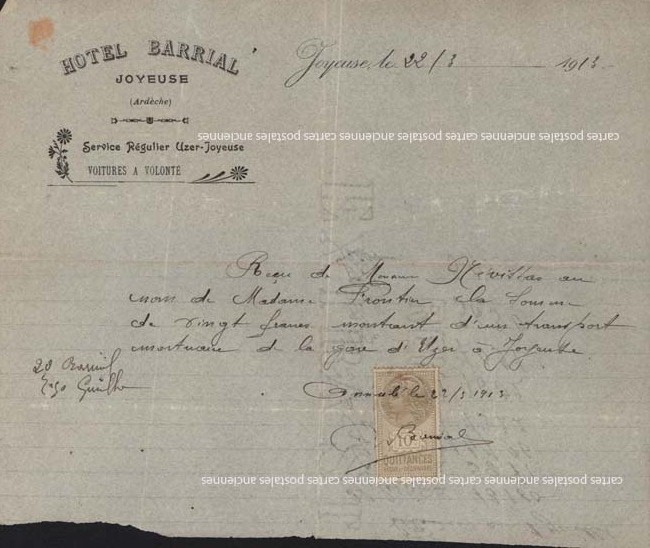 HOTEL BARRIAL
JOYEUSE
(Ardèche)
Service Régulier Uzer-Joyeuse
VOITURES A VOLONTÉ
Joyeuse, le 22/3 1913
cartes postales anciennes cartes postales anciennes cartes postales anciennes
Reçu de Monsieur au
nom de Madame la somme
de vingt francs montant d'un transport
mortuaire de la gare d'Uzer à Joyeuse
20 Barrial
7,50
Annulé le 22/3 1913
Barrial
10c
QUITTANCES
cartes postales anciennes cartes postales anciennes cartes postales anciennes